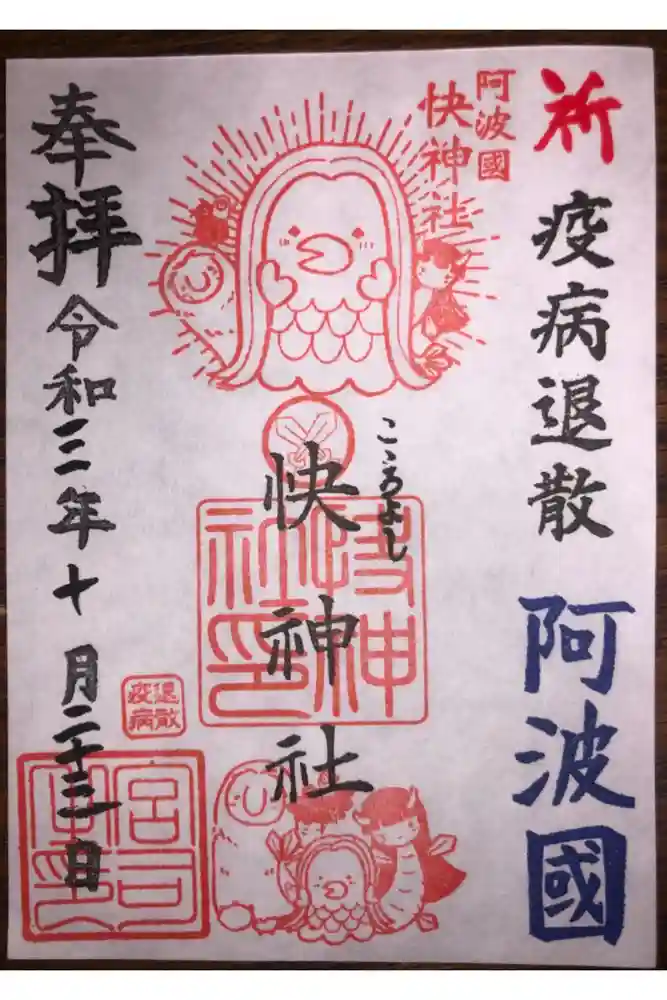 祈
疫病退散
阿波國
阿波國
快神社
こゝろよし
快神社
快神社印
退散
疫病
奉拝
令和三年十月二十三日
宮司
之印